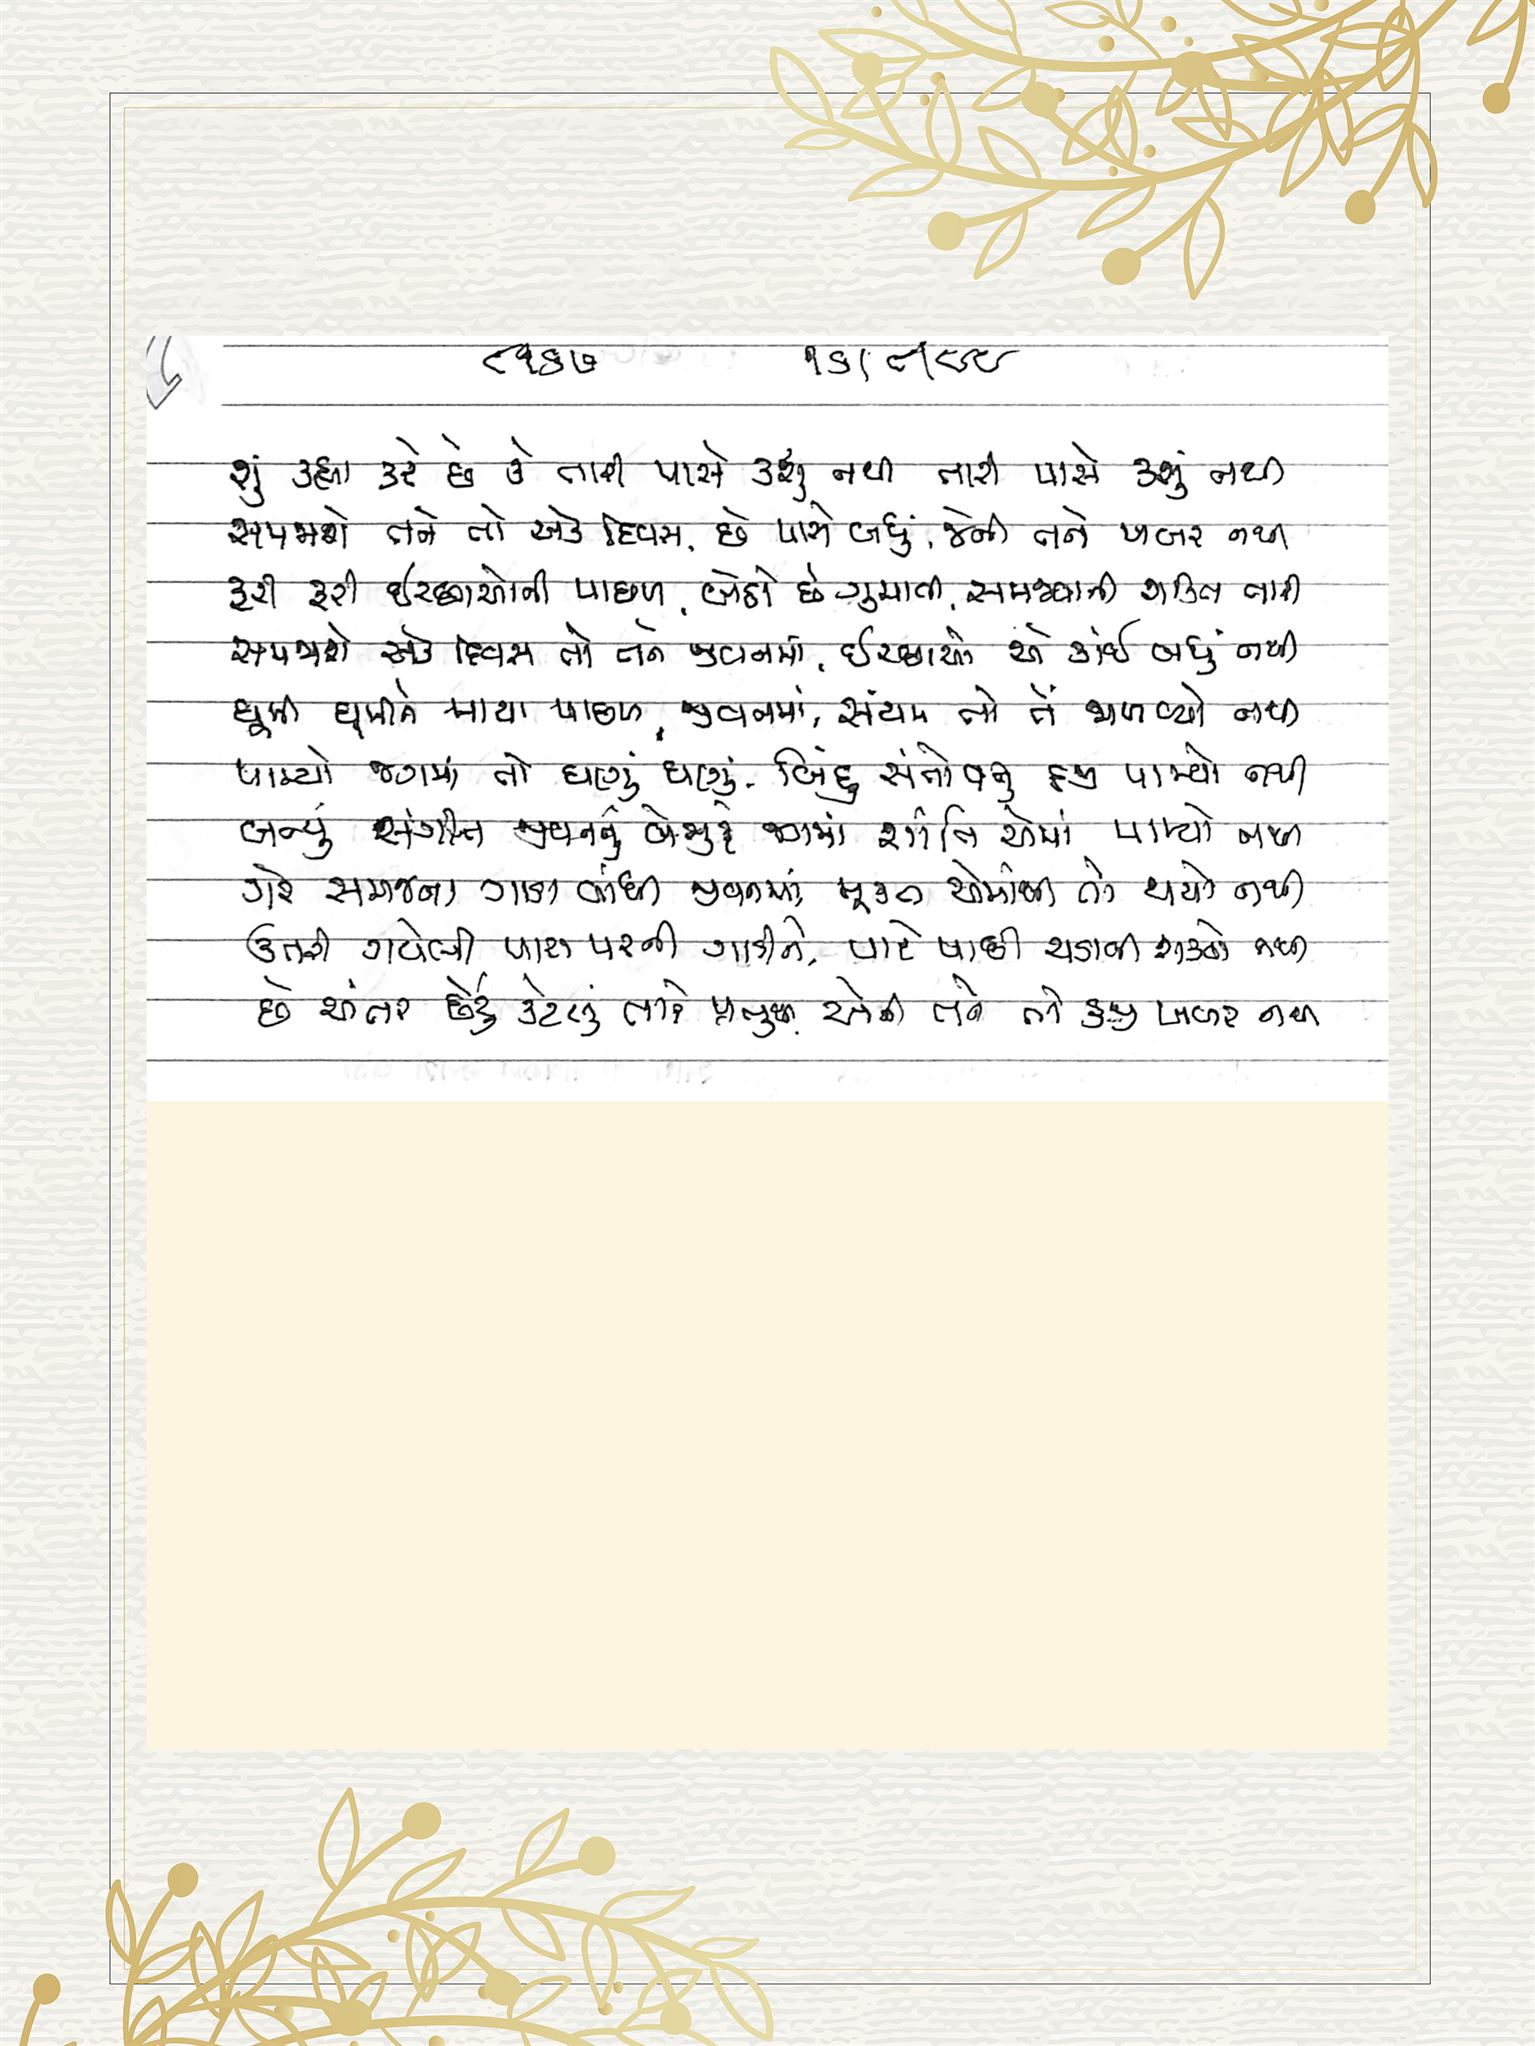 ૮૧૬૭ ૧૬/૮/૯૯
શું કહ્યા કરે છે કે તારી પાસે કશું નથી તારી પાસે કશું નથી
સમજાશે તને તો એક દિવસ, છે પાસે બધું, જેની તને ખબર નથી
કરી કરી ઈચ્છાઓની પાછળ, બેઠો છે ગુમાવી, સમજવાની શક્તિ તારી
સમજાશે એક દિવસ તો તને જીવનમાં, ઈચ્છાઓ એ કાંઈ બધું નથી
ઘૂમી ઘૂમીને માયા પાછળ, જીવનમાં, સંયમ તો તેં જાળવ્યો નથી
પામ્યો જગમાં તો ઘણું ઘણું, બિંદુ સંતોષનું હજી પામ્યો નથી
બન્યું સંગીત જીવનનું બેસુરું જગમાં શાંતિ એમાં પામ્યો નથી
ગેરસમજના ગાંઠ બાંધી જીવનમાં, મુક્ત એમાંથી તો થયો નથી
ઉતરી ગયેલી પાટા પરની ગાડીને, પાટે પાછી ચડાવી શક્યો નથી
છે અંતર છેટું કેટલું તારે પ્રભુથી, એની તને તો હજી ખબર નથી